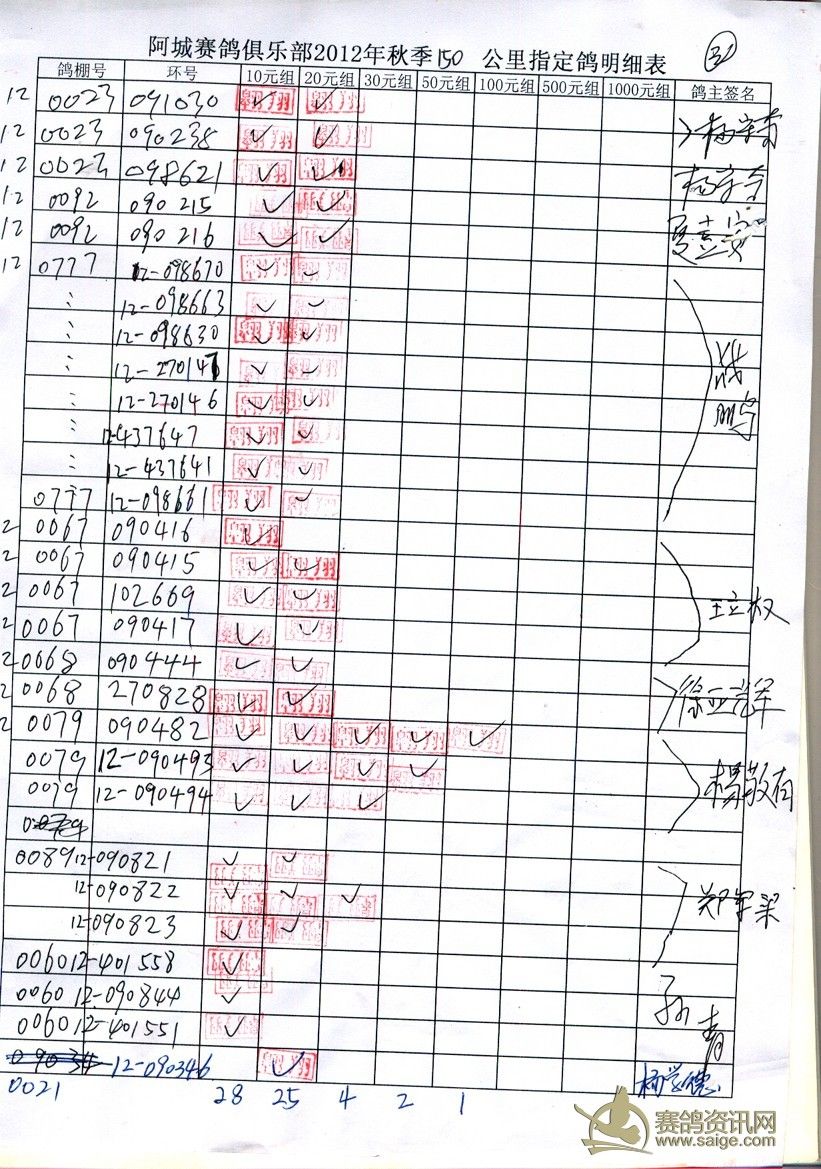 阿城赛鸽俱乐部2012年秋季150 公里指定鸽明细表 3
鸽棚号 环号 10元组 20元组 30元组 50元组 100元组 500元组 1000元组 鸽主签名
12 0023 091030 ✓ ✓
12 0023 090238 ✓ ✓
12 0023 098621 ✓ ✓
12 0092 090215 ✓ ✓
12 0092 090216 ✓ ✓
12 0777 12-098670 ✓ ✓
: 12-098663 ✓ ✓
: 12-098630 ✓ ✓
: 12-270147 ✓ ✓
: 12-270146 ✓ ✓
: 12-437647 ✓ ✓
: 12-437641 ✓ ✓
0777 12-098661 ✓ ✓
2 0067 090416 ✓
2 0067 090415 ✓ ✓
2 0067 102669 ✓ ✓
2 0067 090417 ✓ ✓ 王立权
2 0068 090444 ✓ ✓
2 0068 270828 ✓ ✓
2 0079 090482 ✓ ✓ ✓ ✓ ✓
0079 12-090493 ✓ ✓ ✓ ✓
0079 12-090494 ✓ ✓ ✓ 杨敬有
0089 12-090821 ✓ ✓
12-090822 ✓ ✓ ✓
12-090823 ✓ ✓
0060 12-401558 ✓
0060 12-090844 ✓
0060 12-401551 ✓
12-090346 ✓ 杨学德
0021 28 25 4 2 1
赛鸽资讯网
www.saige.com